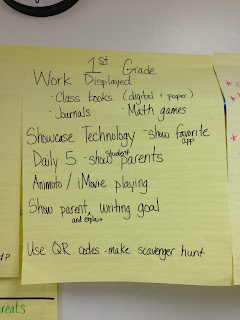 1st Grade
Work Displayed:
- Class books (digital + paper)
- Journals - Math games
Showcase Technology - show favorite app
Daily 5 - show student parents
Animoto / iMovie playing
Show parent, writing goal
and explain
Use QR codes - make scavenger hunt
eats